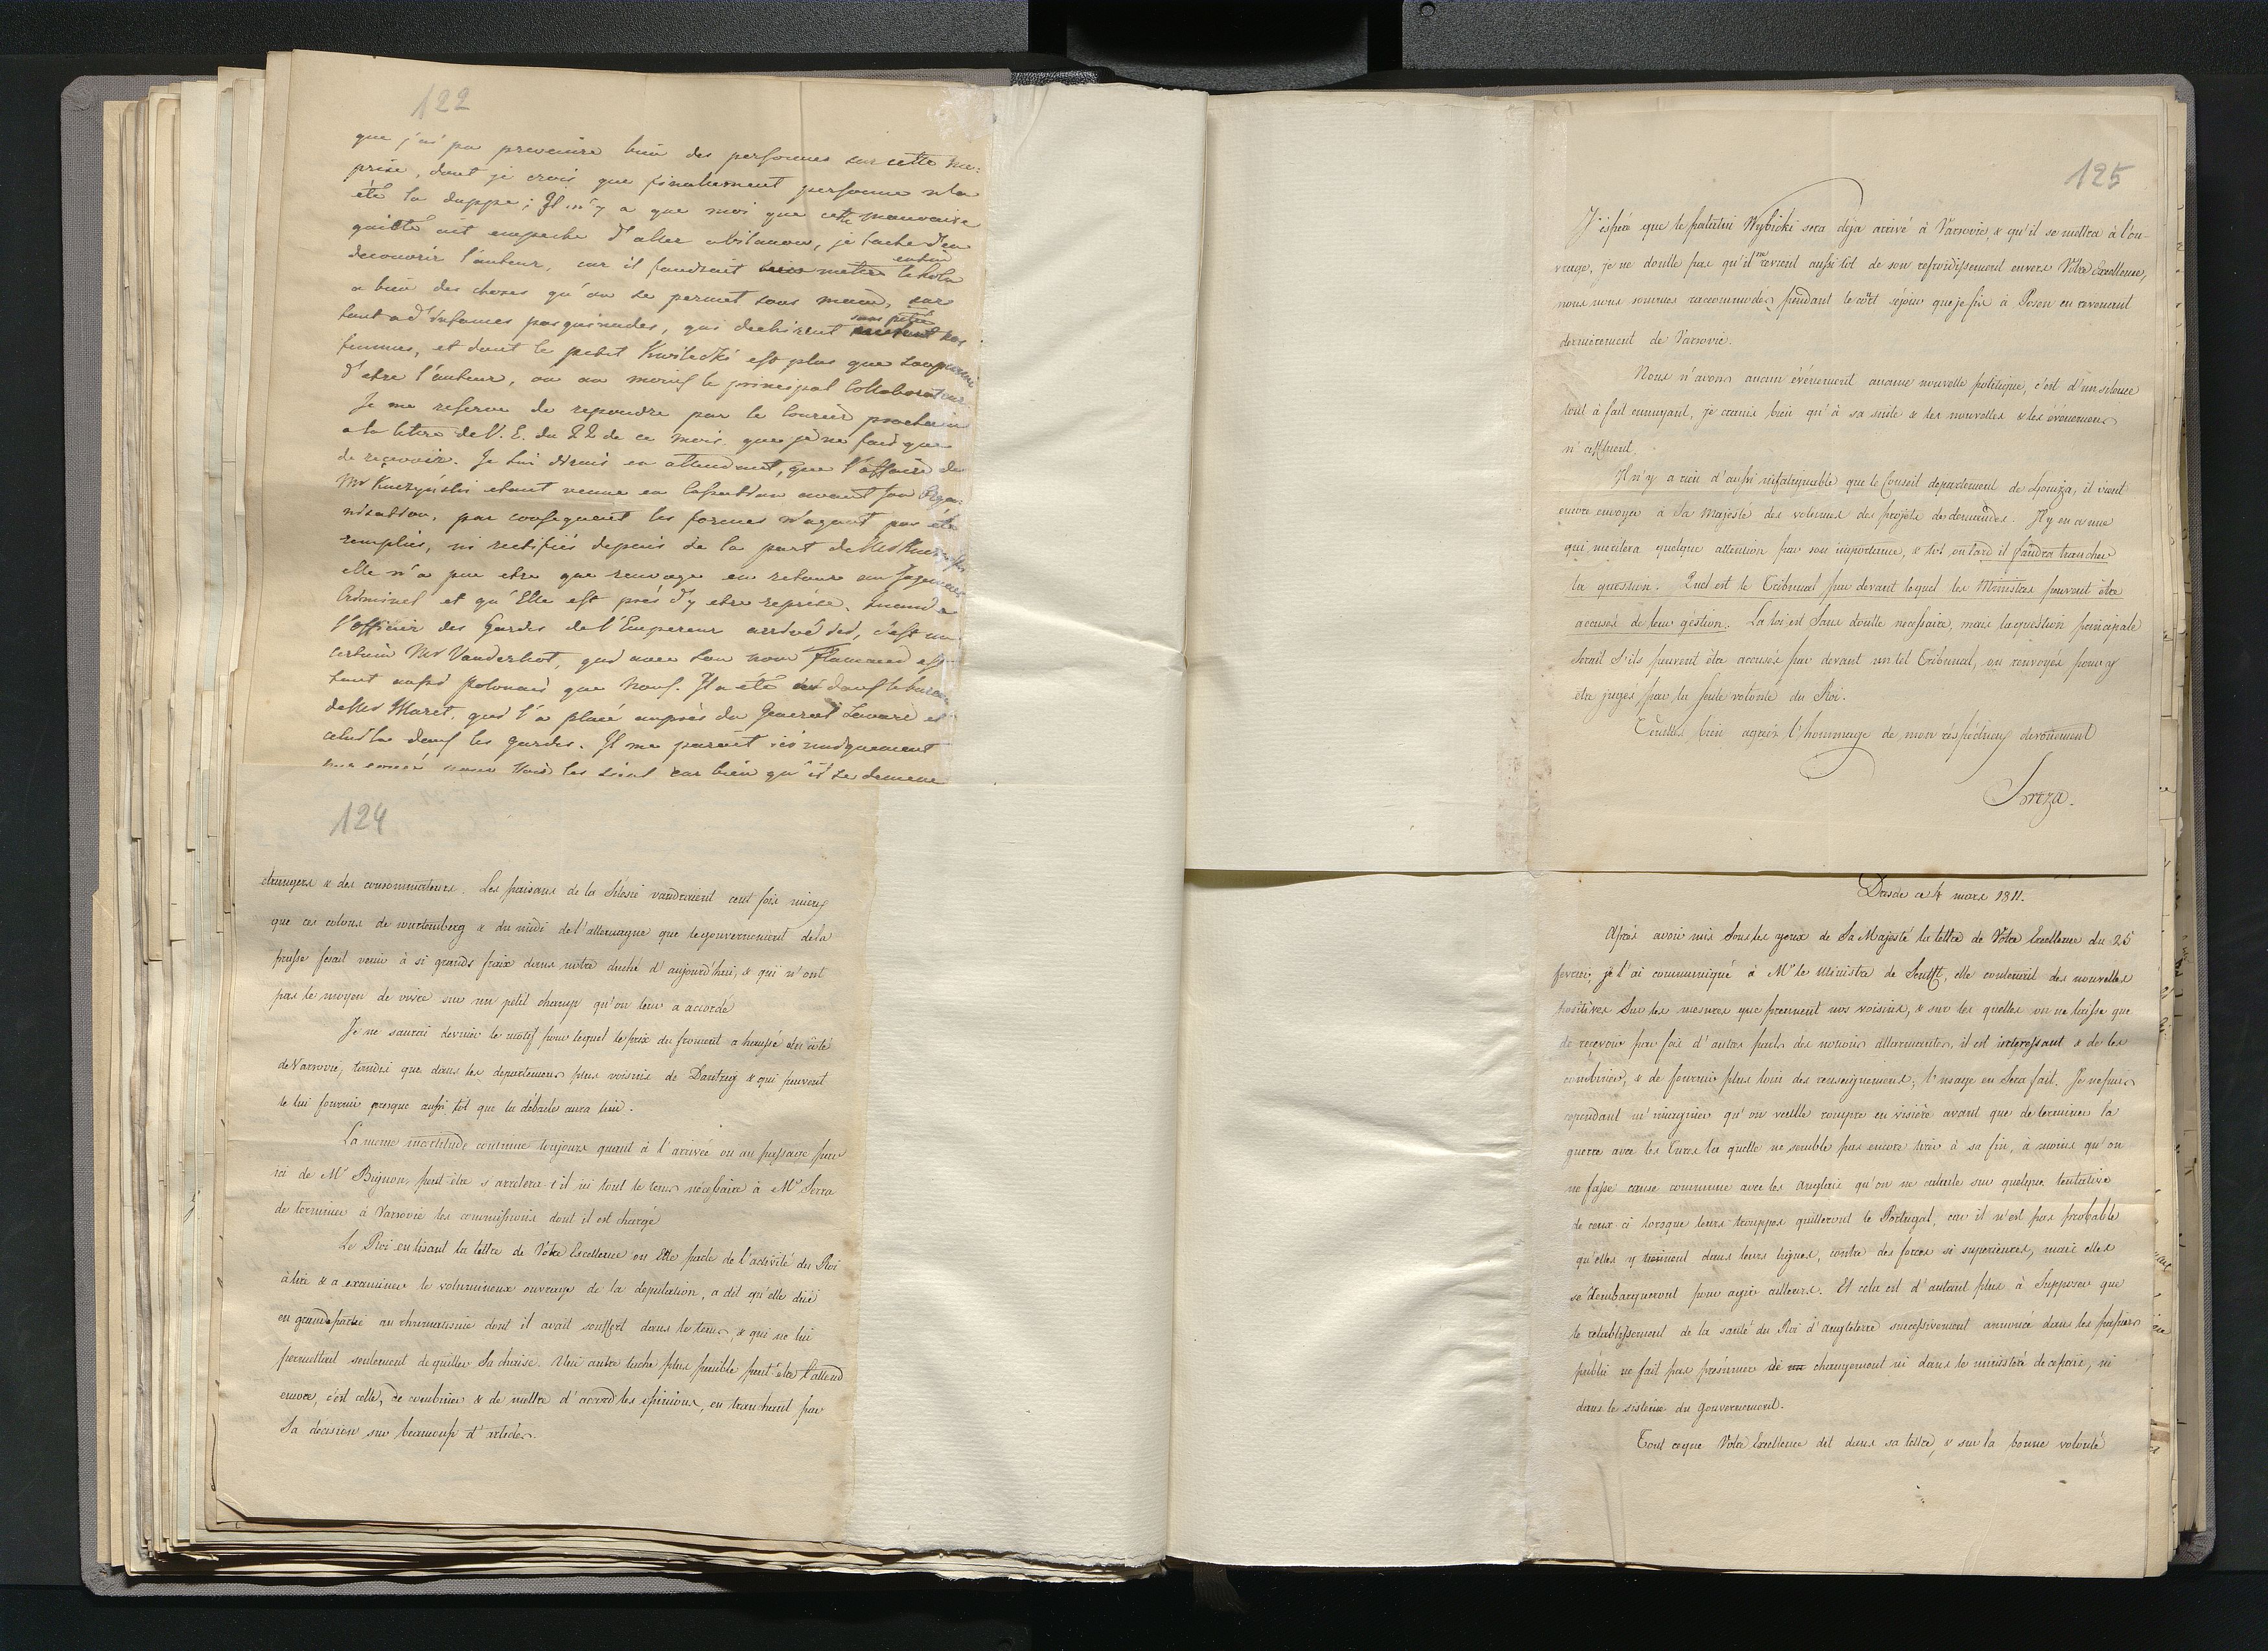 122
que j'ai pu prevenire bien des personnes sur cette me-
prise, dont je crois que finalement personne n'a
été la duppe; Il n'y a que moi que cette mauvaise
gaieté ait empeché d'aller a Vilanow, je tache d'en
decouvrir l'auteur, car il faudrait metre enfin le hola
a bien des choses qu'on se permet sous main, car
tant ad'infames pasquinades, qui dechirent sans pitié nos
femmes, et dont le petit Kwilecki est plus que soupçonné
d'etre l'auteur, ou au moins le principal Collaborateur.
Je me reserve de repondre par le Courier prochain
a la letre de V. E. du 22 de ce mois que je ne fais que
de reçevoir. Je Lui dirais en attendant, que l'affaire de
Mr Kuczyński etant venue en Cassation avant son Orga-
nisation, par consequent les formes n'ayant pas été
remplies, ni rectifiés depuis de la part de Mr
elle n'a pu etre que renvoyée en retour au Jugement
Criminel et qu'Elle est près d'y etre reprise. Quand a
l'officier des Gardes de l'Empereur arrivé ici, c'est un
certain Mr Vanderhot, qui avec son nom Flamand est
tout aussi polonais que nous. Il a été dans le bureau
de Mr Maret, qui l'a placé auprès du General Savari et
celui la dans les gardes. Il me parait ici uniquement
pour voir les siens car bien qu'il se demene
124
étrangers & des consommateurs. Les paisans de la Silésie vaudraient cent fois mieux
que ces colons de wurtemberg & du midi de l'allemagne que le gouvernement de la
prusse fesait venir à si grands fraix dans notre duché d'aujourd'hui, & qui n'ont
pas le moyen de vivre sur un petit champ qu'on leur a accordé
Je ne saurai deviner le motif pour lequel le prix du froment a haussé du coté
de Varsovie, tandis que dans les departemens plus voisins de Dantzig & qui peuvent
le lui fournir presque aussi tôt que la débacle aura lieu.
La meme incertitude continue toujours quant à l'arrivée ou au passage par
ici de Mr Bignon, peut-être s'arrêtera t'il ici tout le tems nécessaire à Mr Serra
de terminer à Varsovie les commissions dont il est chargé
Le Roi en lisant la lettre de Votre Excellence où Elle parle de l'activité du Roi
à lire & a examiner le volumineux ouvrage de la députation, a dit qu'elle
en grande partie au rhumatisme dont il avait souffert dans le tems & qui ne lui
permettait seulement de quitter sa chaise. Une autre tache plus penible peut-être l'attend
encore, c'est celle, de combiner & de mettre d'accord les opinions, en tranchant par
Sa décision sur beaucoup d'articles.
125
J'éspére que le palatin Wybicki sera déja arrivé à Varsovie, & qu'il se mettra à l'ou-
vrage, je ne doutte pas qu'il ne revient aussi tôt de son refroidissement envers Votre Excellence,
nous nous sommes raccommodés pendant le court séjour que je fis à Posen en revenant
dernièrement de Varsovie.
Nous n'avons aucun événement aucune nouvelle politique, c'est d'un silence
tout à fait ennuyant, je crains bien qu'à sa suite & les nouvelles & les événemens
n'affluent.
Il n'y a rien d'aussi infatiguable que le Conseil departement de Łomza, il vient
encore envoyer à Sa Majesté des volumes des projets de demandes. Il y en a une
qui meritera quelque attention par son importance, & tôt ou tard il faudra trancher
la question. Quel est le Tribunal par devant lequel les Ministres peuvent être
accusés de leur géstion. La loi est sans doutte necessaire, mais la question principale
serait s'ils peuvent être accusés par devant un tel Tribunal, ou renvoyés pour y
etre jugés par la seule volonté du Roi.
Veuillez bien agréer l'hommage de mon réspéctueux devouement
Breza.
Dresde ce 4 mars 1811.
Après avoir mis sous les yeux de Sa Majesté la lettre de Votre Excellence du 25
fevrier, je l'ai communiqué à Mr le Ministre de Senfft, elle contenait des nouvelles
positives sur les mesures que prennent nos voisins, & sur les quelles on ne laisse que
de recevoir par fois d'autres parts des notions allarmantes, il est intéressant & de les
combiner, & de fournir plus loin des renseignemens; l'usage en sera fait. Je ne puis
cependant m'imaginer qu'on veuille rompre en visière avant que de terminer la
guerre avec les Turcs la quelle ne semble pas encore tirer à sa fin, à moins qu'on
ne fasse cause commune avec les anglais qu'on ne calcule sur quelque tentative
de ceux-ci lorsque leurs trouppes quitteront le Portugal, car il n'est pas probable
qu'elles y tiennent dans leurs lignes, contre des forces si superieures, mais elles
se dembarqueront pour agir ailleurs. Et cela est d'autant plus à supposer que
le retablissement de la santé du Roi d'angleterre successivement annoncé dans les papiers
publics ne fait pas présumer de changement ni dans le ministère de ce pais, ni
dans le sistème du gouvernement.
Tout ce que Votre Excellence dit dans sa lettre, & sur la bonne volonté